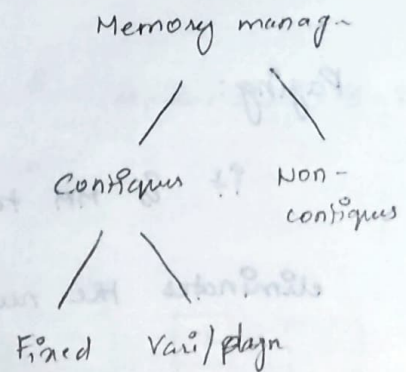 Memory manag-
Contiques
Non-
contiques
Fixed
Vari/